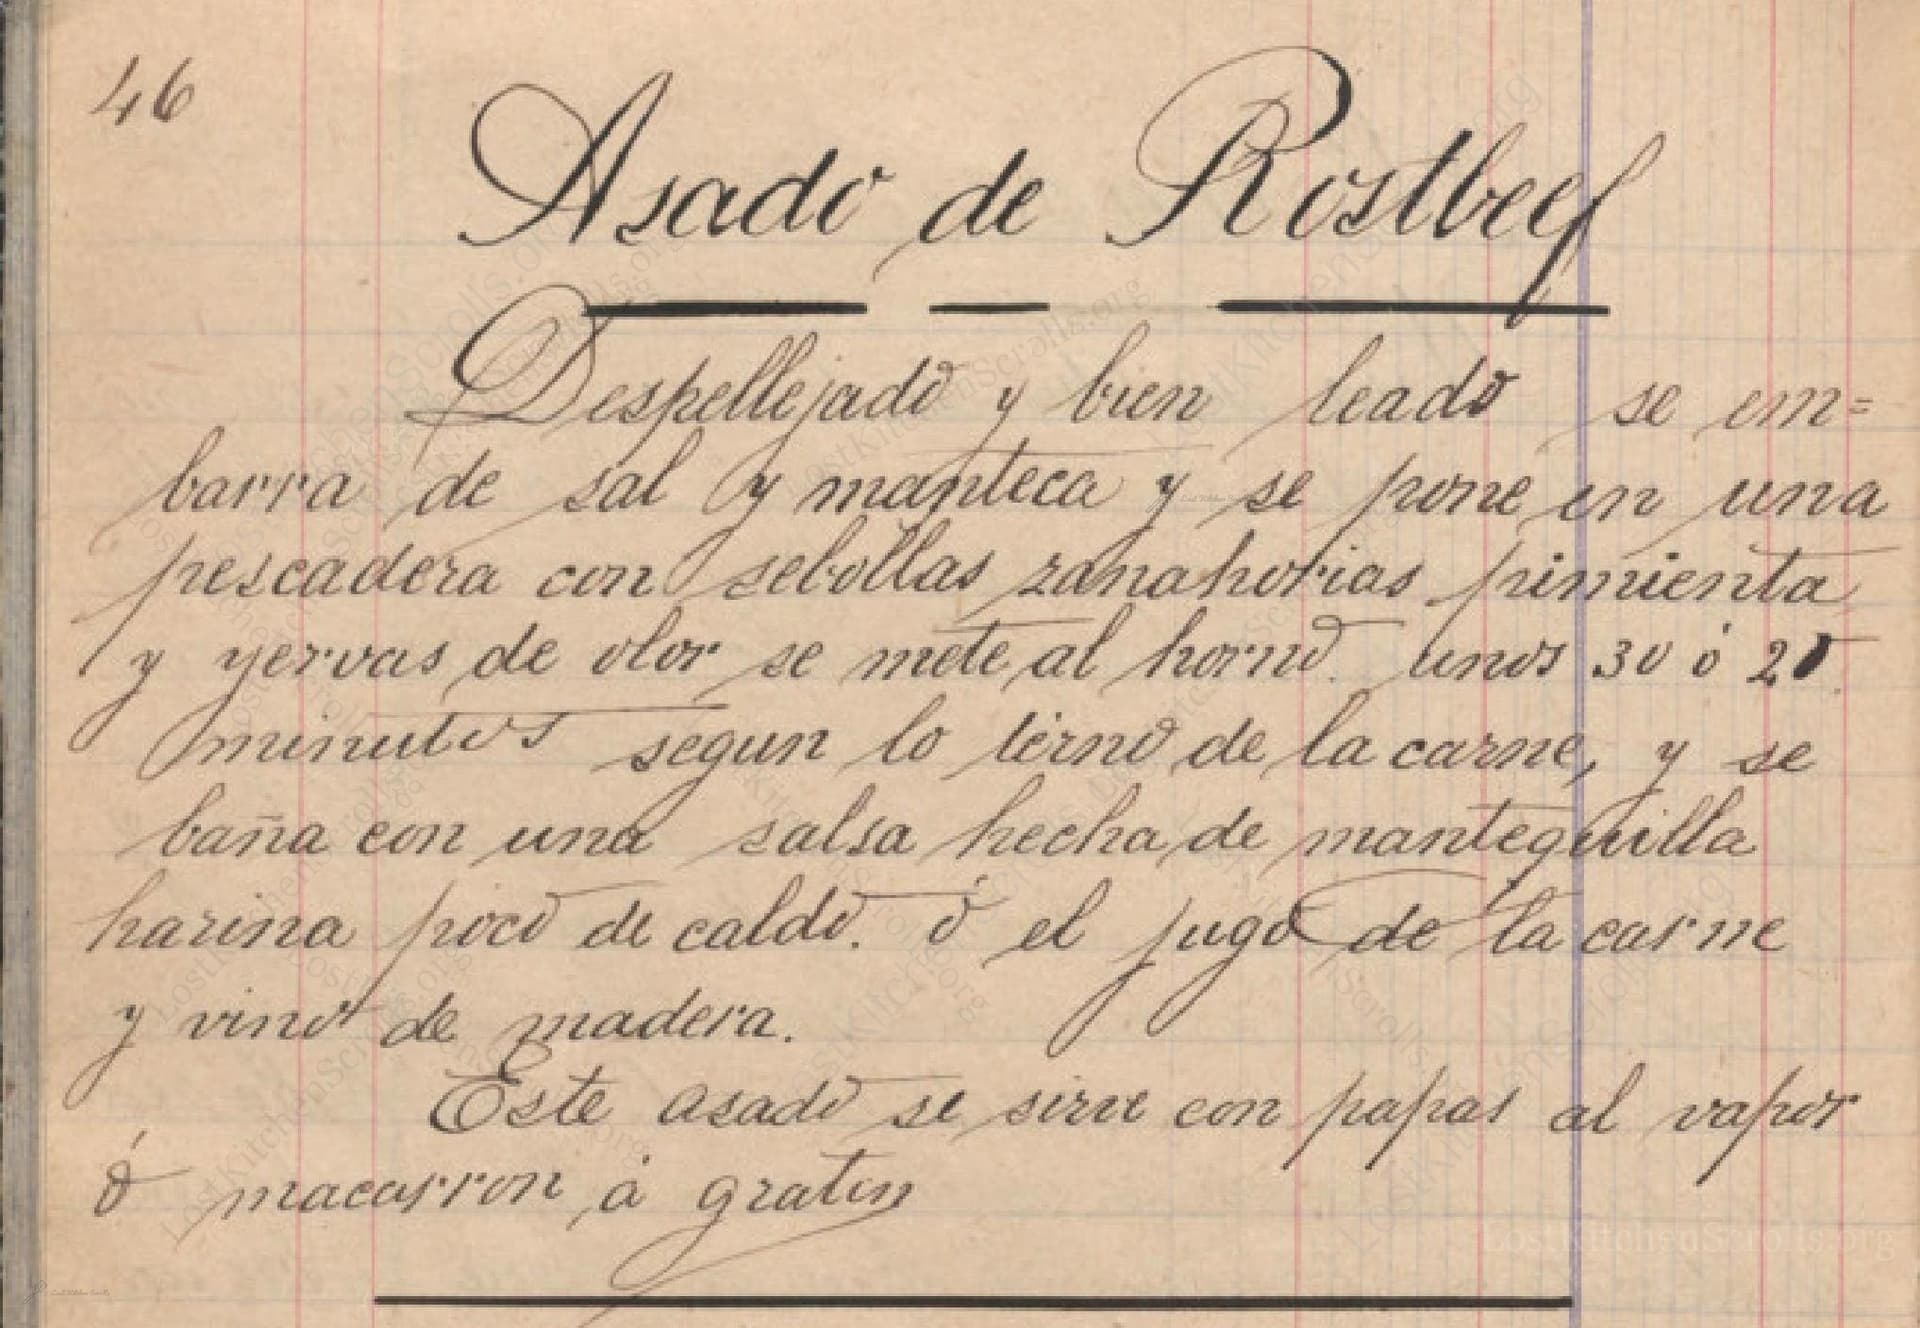 46
Asado de Rostbeef
Despellejado y bien leado se em=
barra de sal y manteca y se pone en una
pescadera con sebollas zanahorias pimienta
y yervas de olor se mete al horno. unos 30 ó 20
minutos segun lo terno de la carne, y se
baña con una salsa hecha de mantequilla
harina poco de caldo. ó el jugo de la carne
y vino de madera.
Este asado se sirve con papas al vapor
ó macarron á gratin
LostKitchenScrolls.org